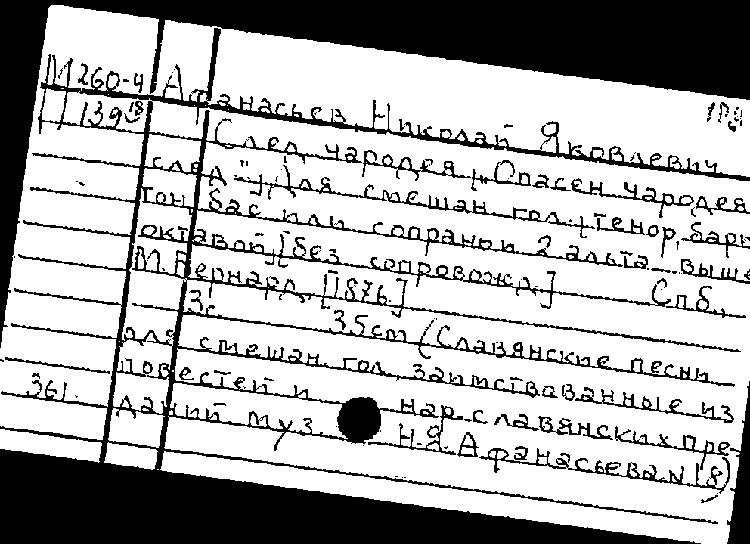 М 260-4 Афанасьев, Николай Яковлевич
П 139
След чародея „Опасен чародея
след". Для смешан. гол. (тенор, бари-
тон, бас или сопрано и 2 альта выше
октавой) [без сопровожд.] Спб.,
М. Бернард, [1876]
3 с. 35 cm (Славянские песни
для смешан. гол., заимствованные из
повестей и нар. славянских пре-
361. даний муз. Н.Я. Афанасьева. N 18)